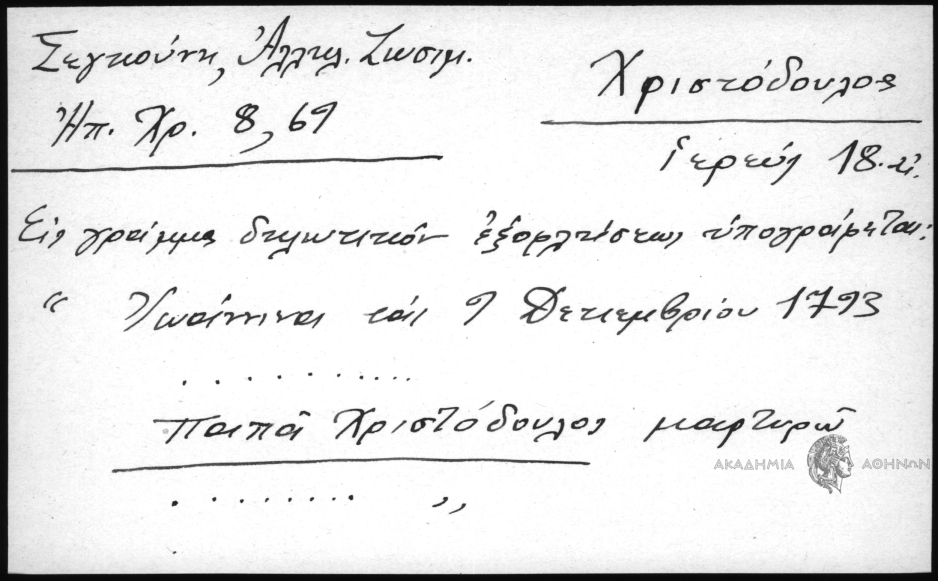 Σεγκούνη, Ἀλληλ. Ζωσιμ.
Ἠπ. Χρ. 8, 69
Χριστόδουλος
ἱερεύς 18. αἰ.
Εἰς γράμμα δηλωτικόν ἐξοφλήσεως ὑπογράφεται:
“ Ἰωάννινα τάς 9 Δεκεμβρίου 1793
. . . . . . . . . . .
Παπᾶ Χριστόδουλος μαρτυρῶ
. . . . . . . . ,,
ΑΚΑΔΗΜΙΑ ΑΘΗΝΩΝ